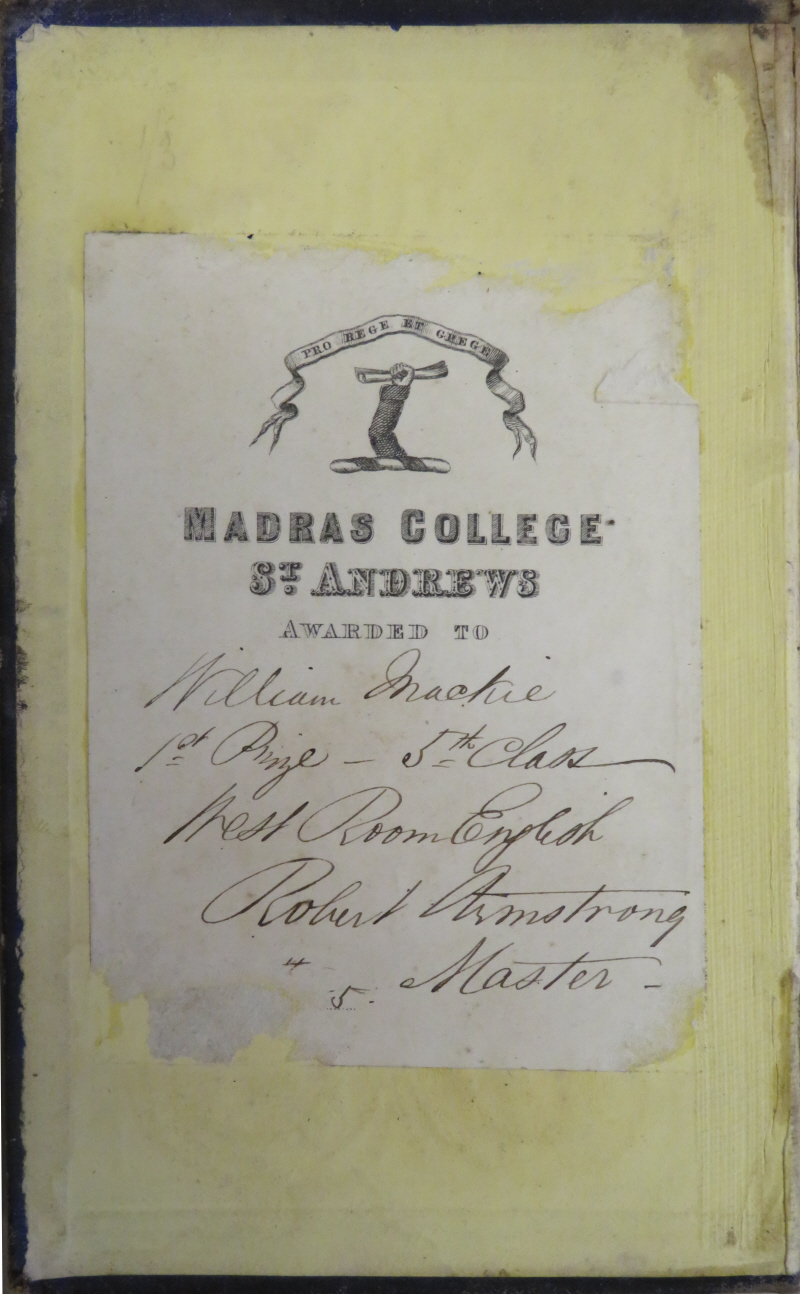 PRO REGE ET GREGE
MADRAS COLLEGE
ST. ANDREWS
AWARDED TO
William Mackie
1st Prize – 5th Class
West Room English
Robert Armstrong
Master –
5.